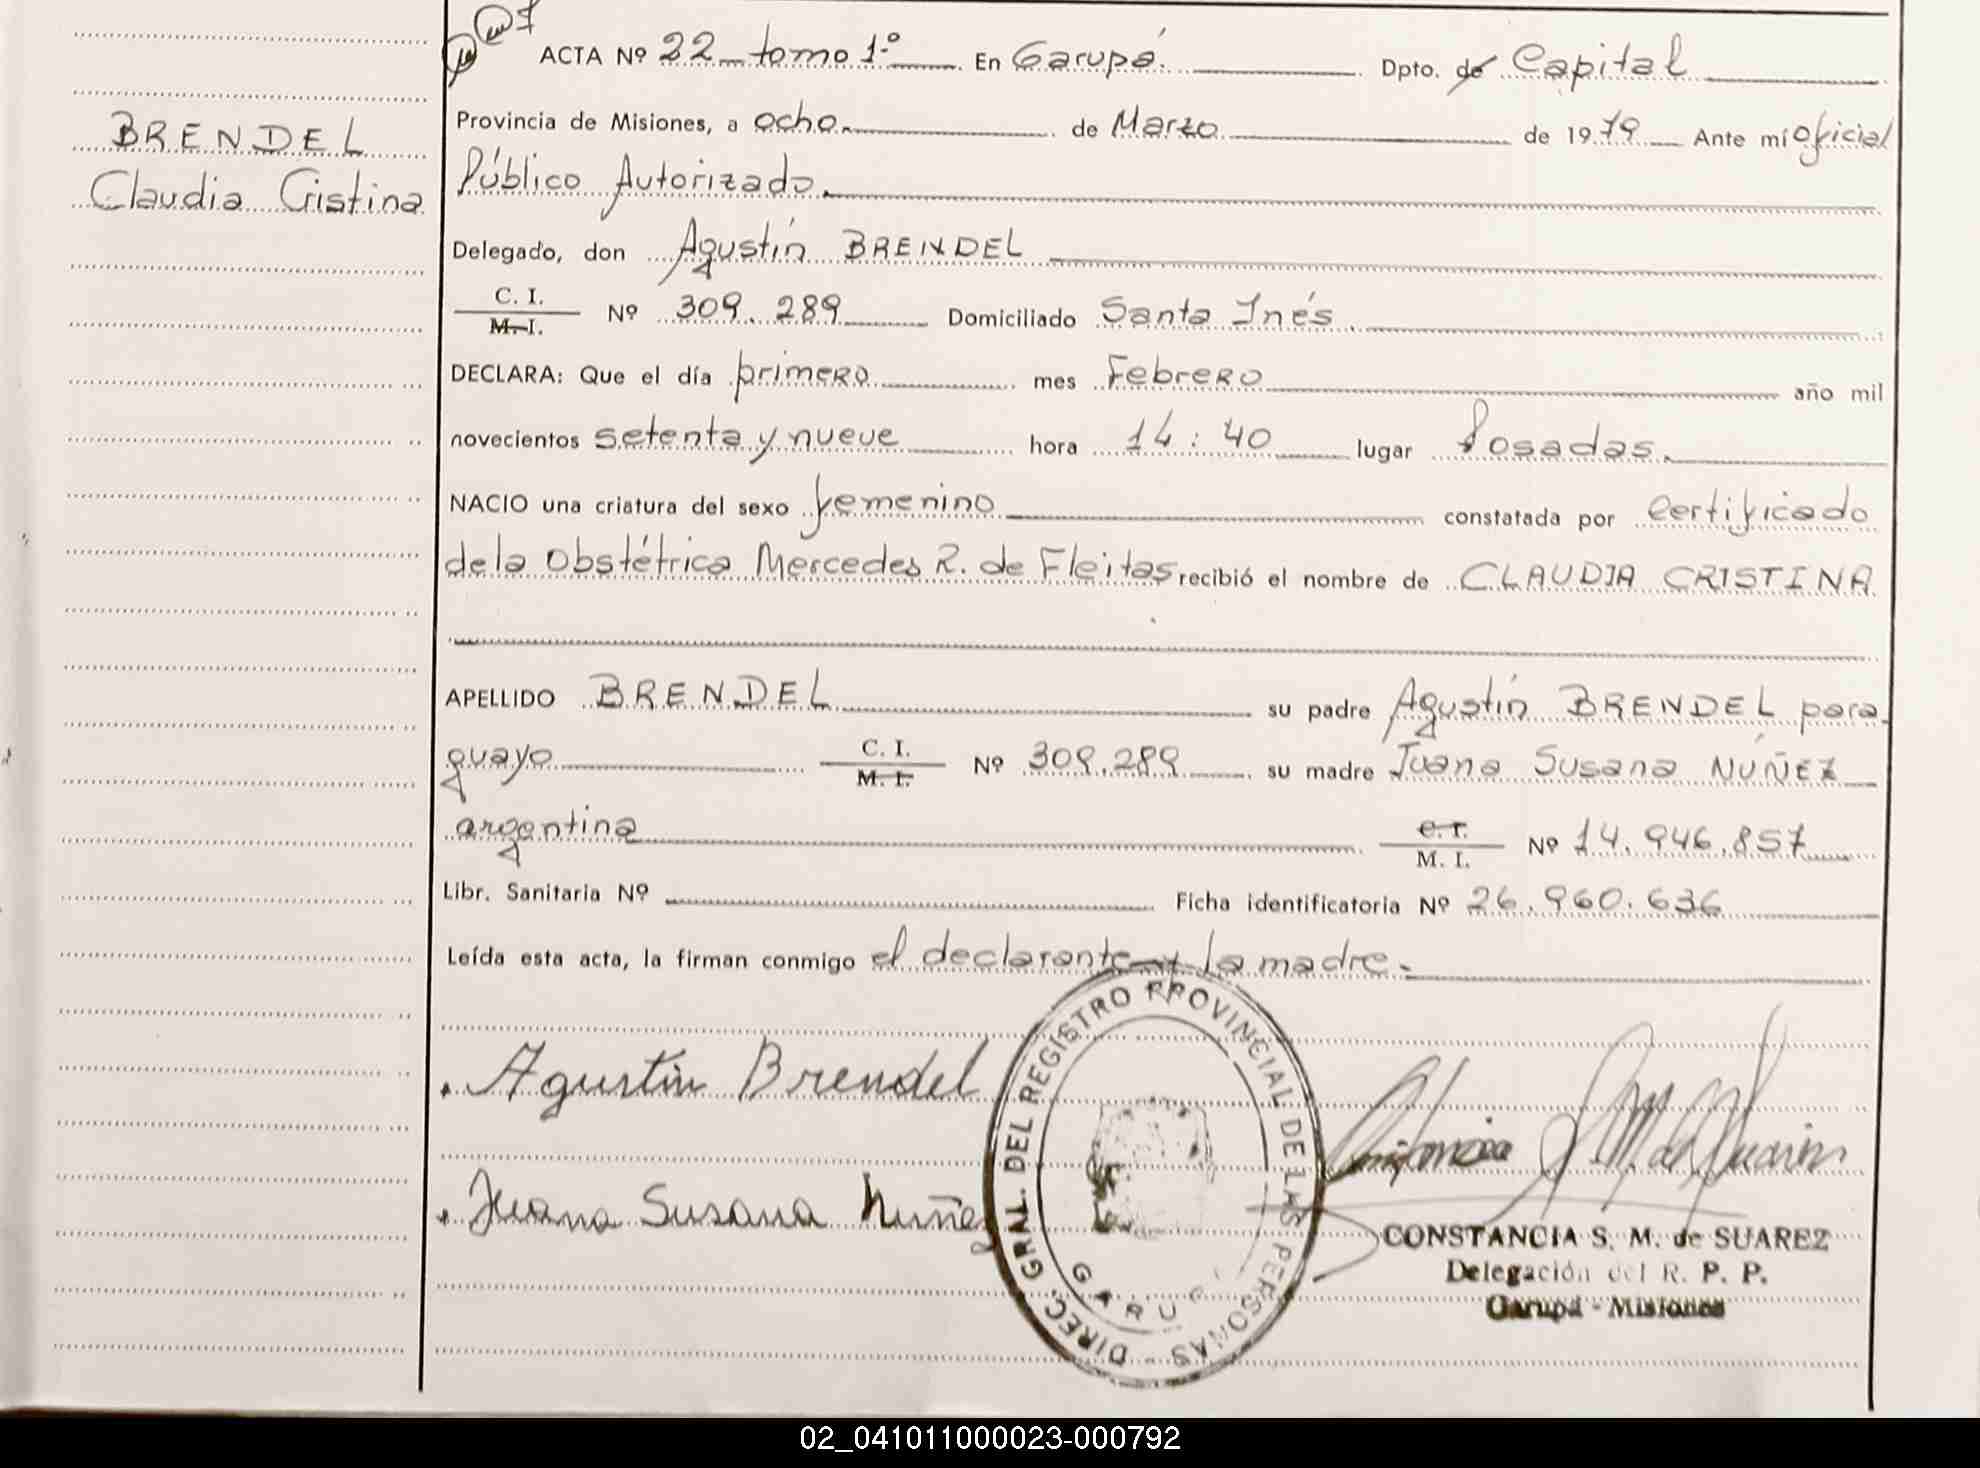 ACTA Nº 22 tomo 1º En Garupá. Dpto. de Capital
BRENDEL
Claudia Cristina
Provincia de Misiones, a ocho de Marzo de 1979 Ante mí oficial
Público Autorizado.
Delegado, don Agustín BRENDEL
C. I.
M. I. Nº 309.289 Domiciliado Santa Inés.
DECLARA: Que el día primero mes Febrero año mil
novecientos setenta y nueve hora 14:40 lugar Posadas.
NACIO una criatura del sexo femenino constatada por certificado
de la Obstétrica Mercedes R. de Fleitas recibió el nombre de CLAUDIA CRISTINA
APELLIDO BRENDEL su padre Agustín BRENDEL para
guayo C. I.
M. I. Nº 309.289 su madre Juana Susana NÚÑEZ
argentina C. I.
M. I. Nº 14.946.857
Libr. Sanitaria Nº Ficha identificatoria Nº 26.960.636
Leída esta acta, la firman conmigo el declarante y la madre.
Agustín Brendel
Juana Susana Nuñez
DIREC. GRAL. DEL REGISTRO PROVINCIAL DE LAS PERSONAS -
GARUPÁ
CONSTANCIA S. M. de SUAREZ
Delegación del R. P. P.
Garupá - Misiones
02_041011000023-000792